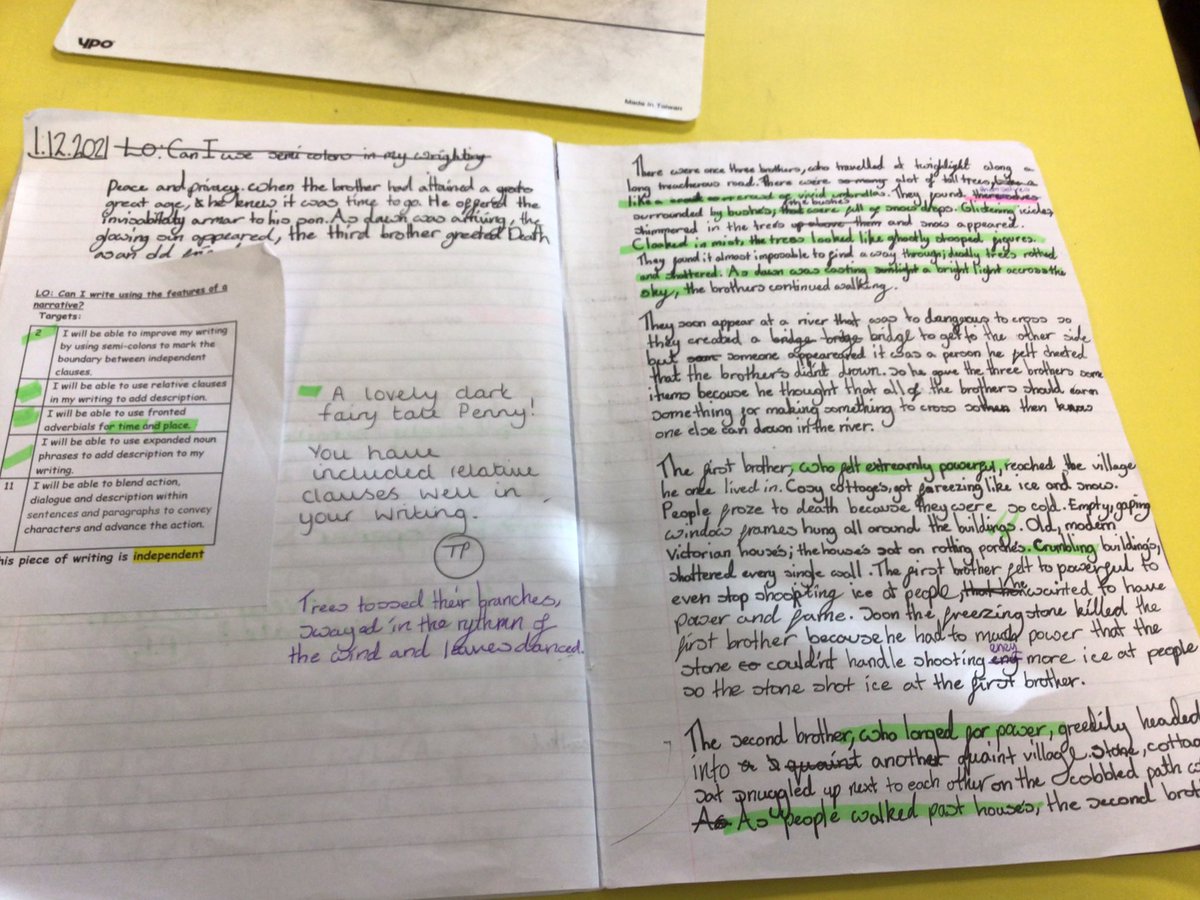 ypo
Made in Taiwan
1.12.2021 LO: Can I use semi colons in my wrighting
Peace and privacy. when the brother had attained a
great age, he knew it was time to go. He offered the
invisability armar to his son. As dawn was arriving, the
glowing sun appeared, the third brother greeted Death
as an old
LO: Can I write using the features of a
narrative?
Targets:
2 I will be able to improve my writing
by using semi-colons to mark the
boundary between independent
clauses.
I will be able to use relative clauses
in my writing to add description.
I will be able to use fronted
adverbials for time and place.
I will be able to use expanded noun
phrases to add description to my
writing.
11 I will be able to blend action,
dialogue and description within
sentences and paragraphs to convey
characters and advance the action.
his piece of writing is independent
A lovely dark
fairy tale Penny!
You have
included relative
clauses well in
your writing.
TP
Trees tossed their branches,
swayed in the rythmn of
the wind and leaves danced.
There were once three brothers, who travelled at twighlight along a
long treacherous road. There were so many alot of tall trees,
like a crowd of vivid umbrellas. They found themselves
surrounded by bushes; the bushes were full of snow drops. Glistening icicles,
shimmered in the trees up above them and snow appeared.
Cloaked in mist; the trees looked like ghostly stooped figures.
They found it almost impossible to find a way through; deadly trees rotted
and shattered. As dawn was casting sunlight a bright light accross the
sky, the brothers continued walking.
They soon appear at a river that was to dangous to cross so
they created a bridge bridge bridge to get to the other side
but soon someone appeareared it was a person he felt cheeted
that the brother's didn't drown. So he gave the three brothers some
items because he thought that all of the brothers should earn
something for making something to cross so then know
one else can drown in the river.
The first brother, who felt extreamly powerful, reached the village
he once lived in. Cosy cottages, got freezing like ice and snow.
People froze to death because they were so cold. Empty, gaping
window frames hung all around the buildings. Old, modern
Victorian houses; the houses sat on rotting porches. Crumbling buildings,
shattered every single wall. The first brother felt to powerful to
even stop shoopting ice at people, that he he wanted to have
power and fame. Soon the freezing stone killed the
first brother because he had to much power that the
stone couldn't handle shooting eney more ice at people
so the stone shot ice at the first brother.
The second brother, who longed for power, greedily headed
into a quaint another quaint village. Stone, cottag
sat snuggled up next to each other on the cobbled path
As As people walked past houses, the second brot